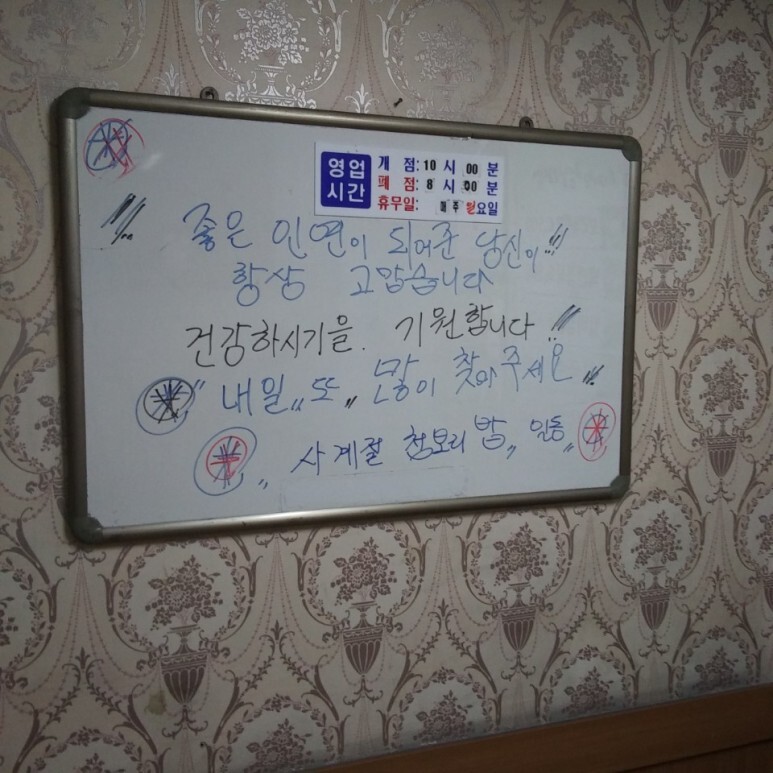 영업시간
개 점: 10 시 00 분
폐 점: 8 시 00 분
휴무일: 매주 월요일
좋은 인연이 되어준 당신이!!
항상 고맙습니다
건강하시기을. 기원합니다!!
"내일" 또" 많이 찾아주세요"
" 사계절 청보리밥" 일동"